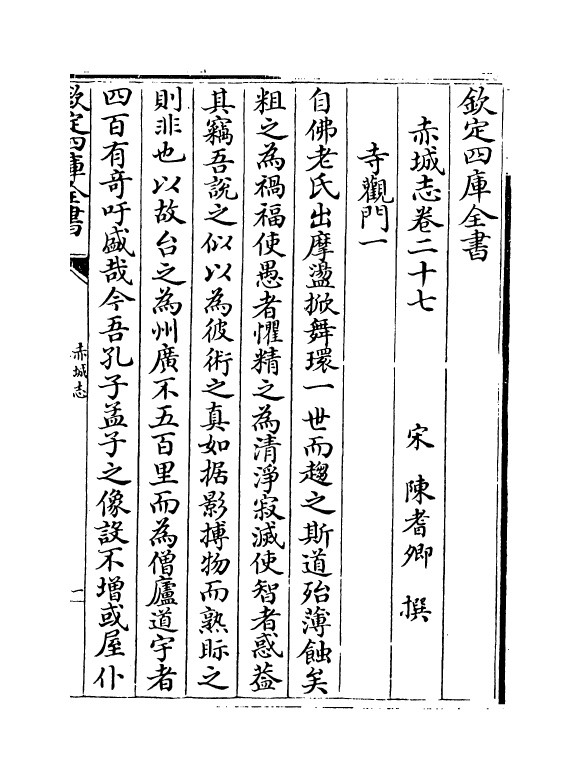 欽定四庫全書
赤城志卷二十七
宋 陳耆卿 撰
寺觀門一
自佛老氏出摩盪掀舞環一世而趨之斯道殆薄蝕矣
粗之為禍福使愚者懼精之為清淨寂滅使智者惑葢
其竊吾說之似以為彼術之真如据影搏物而熟眎之
則非也以故台之為州廣不五百里而為僧廬道宇者
四百有竒吁盛哉今吾孔子孟子之像設不增或屋仆
欽定四庫全書
赤城志
一